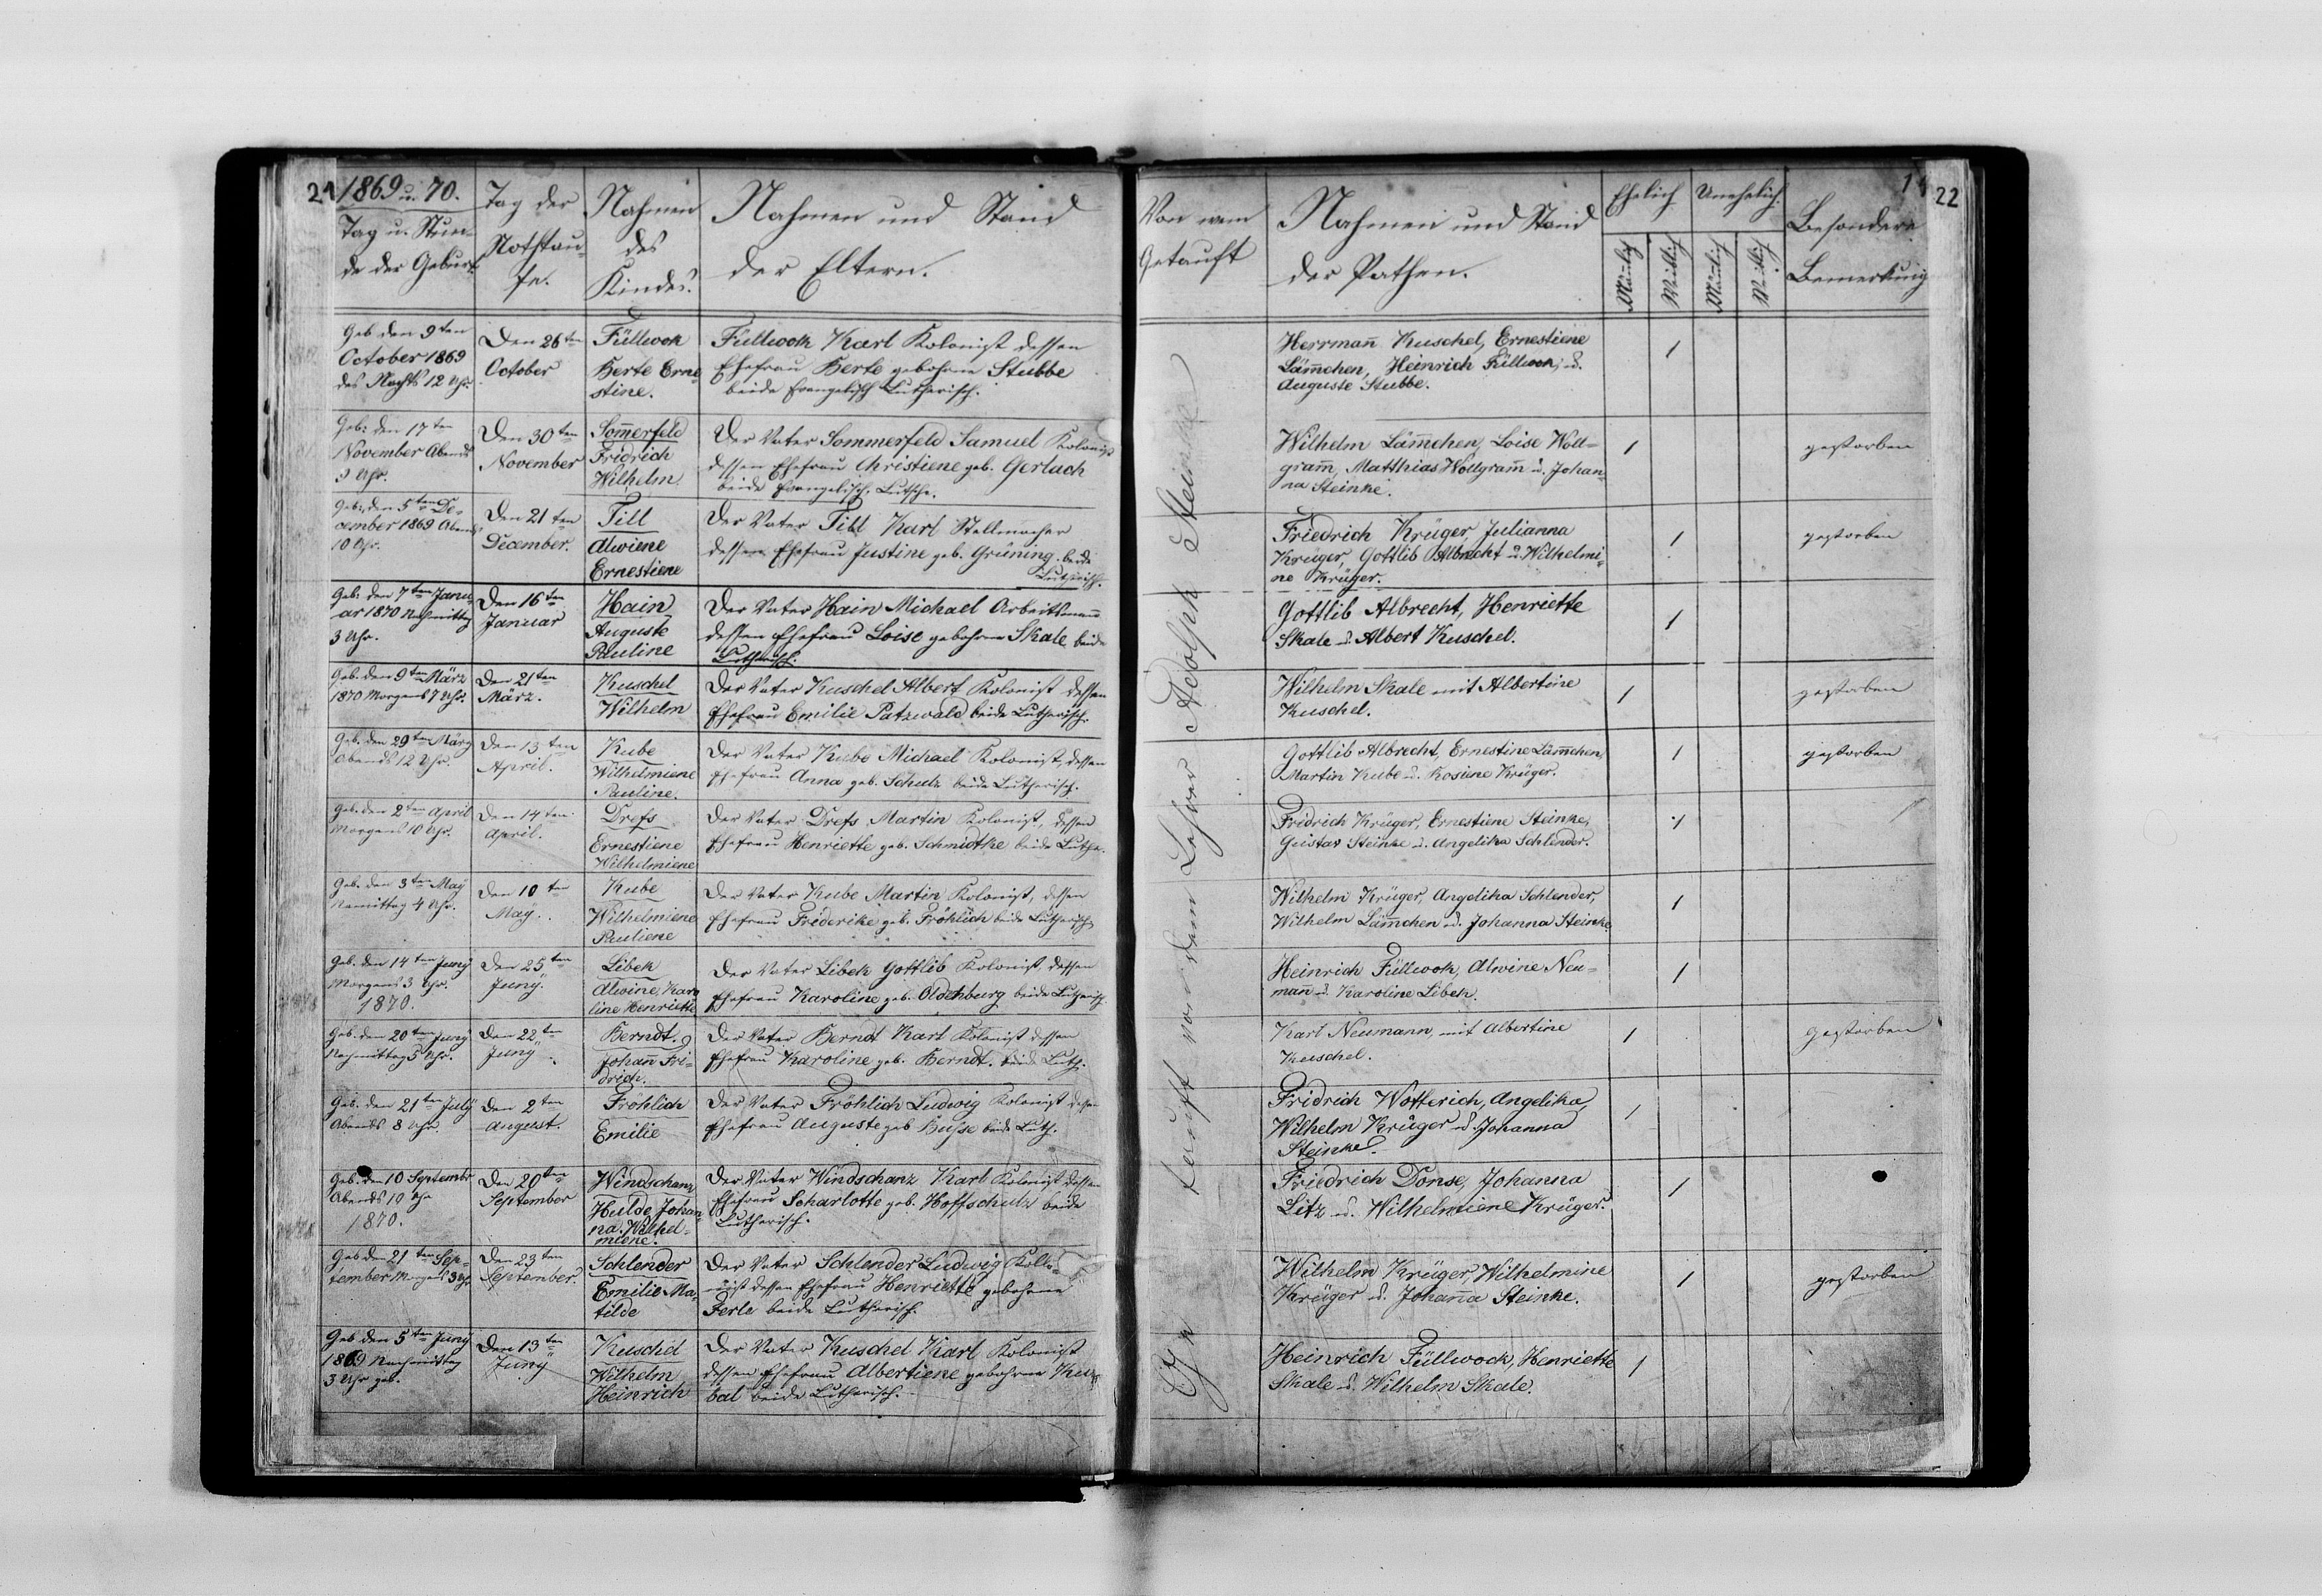 21
1869 u. 70.
Tag u. Stun-
de der Geburt
Tag der
Nothtau-
fe.
Nahmen
des
Kindes.
Nahmen und Stand
der Eltern.
Geb. den 9ten
October 1869
des Nachts 12 Uhr
Den 26ten
October
Füllwok
Berte Erne-
stine.
Füllwok Karl Kolonist dessen
Ehefrau Berte gebohrne Stubbe
beide Evangelisch Lutherisch.
Geb. den 17ten
November Abends
9 Uhr.
Den 30ten
November
Som̄erfeld
Fridrich
Wilhelm
Der Vater Sommerfeld Samuel Kolonist
dessen Ehefrau Christiene geb. Gerlach
beide Evangelisch. Luthr.
Geb. den 5ten De-
cember 1869 Abends
10 Uhr.
Den 21ten
December.
Till
Alwiene
Ernestiene
Der Vater Till Karl Stellmacher
dessen Ehefrau Justine geb. Grüning. beide
Lutherisch.
Geb. den 7ten Janu-
ar 1870 Nachmittag
3 Uhr.
Den 16ten
Januar
Hain
Auguste
Pauline
Der Vater Hain Michael Arbeitsman̄
dessen Ehefrau Loise gebohrne Skale beide
Lutherisch.
Geb. den 9ten März
1870 Morgens 7 Uhr.
Den 21ten
März.
Kuschel
Wilhelm
Der Vater Kuschel Albert Kolonist dessen
Ehefrau Emilie Patzwald beide Lutherisch.
Geb. den 29ten März
Abends 12 Uhr.
Den 13ten
April.
Kube
Wilhelmiene
Pauline.
Der Vater Kube Michael Kolonist, dessen
Ehefrau Anna geb. Schulz beide Lutherisch.
Geb. den 2ten April
Morgens 10 Uhr.
Den 14ten
April.
Drefs
Ernestiene
Wilhelmiene
Der Vater Drefs Martin Kolonist, dessen
Ehefrau Henriette geb. Schmidtke beide Luthr.
Geb. den 3ten May
Namittag 4 Uhr.
Den 10ten
May.
Kube
Wilhelmiene
Pauliene
Der Vater Kube Martin Kolonist, dessen
Ehefrau Friederike geb. Fröhlich beide Lutherisch
Geb. den 14ten Juny
Morgens 3 Uhr.
1870.
Den 25ten
Juny.
Libek
Alwine, Karo
line Henriette
Der Vater Libek Gottlib Kolonist dessen
Ehefrau Karoline geb. Oldenburg beide Lutherisch
Geb. den 20ten Juny
Nachmittag 5 Uhr.
Den 22ten
Juny.
Berndt.
Johan̄ Fri-
drich.
Der Vater Berndt Karl Kolonist dessen
Ehefrau Karoline geb. Berndt. beide Luth.
Geb. den 21ten July
Abends 8 Uhr.
Den 2ten
August.
Fröhlich
Emilie
Der Vater Fröhlich Ludwig Kolonist dessen
Ehefrau Auguste geb Busse beide Luth.
Geb. den 10 Septembr
Abends 10 Uhr
1870.
Den 20ten
September
Windschanz
Hulde Johan-
na. Wilhel-
miene.
Der Vater Windschanz Karl Kolonist dessen
Ehefrau Scharlotte geb. Hoffschulz beide
Lutherisch.
Geb den 21ten Sep-
tember Morgens 3 Uhr
Den 23ten
September.
Schlender
Emilie Ma-
tilde
Der Vater Schlender Ludwig Kollo-
nist dessen Ehefrau Henriette gebohrne
Ferle beide Lutherisch.
Geb den 5ten Juny
1869 Nachmittag
3 Uhr geb.
Den 13ten
Juny
Kuschel
Wilhelm
Heinrich
Der Vater Kuschel Karl Kolonist
dessen Ehefrau Albertiene gebohrne
beide Lutherisch.
22
Von wem
Getauft
Nahmen und Stand
der Pathen.
Ehelich
Unehelich.
Mänlich
Weiblich
Mänlich
Weiblich
Besondere
Bemerkung
getauft von dem Lehrer Adolph Steinke
Herrman̄ Kuschel, Ernestiene
Läm̄chen, Heinrich Füllwok, u.
Auguste Stubbe.
1
Wilhelm Läm̄chen, Loise Woll-
gram̄, Matthias Wollgram̄ u. Johan-
na Steinke.
1
gestorben
Friedrich Krüger, Julianna
Krüger, Gottlib Albrecht u. Wilhelmi-
ne Krüger.
1
gestorben
Gottlib Albrecht, Henriette
Skale u. Albert Kuschel.
1
Wilhelm Skale mit Albertine
Kuschel.
1
gestorben
Gottlib Albrecht, Ernestine Läm̄chen,
Martin Kube u. Rosine Krüger.
1
gestorben
Fridrich Krüger, Ernestiene Steinke,
Gustav Steinke u. Angelika Schlender.
1
Wilhelm Krüger, Angelika Schlender,
Wilhelm Läm̄chen u. Johanna Steinke
1
Heinrich Füllwok, Alwine Neu-
man̄ u. Karoline Libek.
1
Karl Neumann, mit Albertine
Kuschel.
1
Gestorben
Fridrich Wotterich, Angelika,
Wilhelm Krüger u. Johanna
Steinke.
1
Friedrich Donse, Johanna
Litz u. Wilhelmiene Krüger.
1
Wilhelm Krüger, Wilhelmine
Krüger u. Johan̄a Steinke.
1
gestorben
Heinrich Füllwock, Henriette
Skale u. Wilhelm Skale.
1